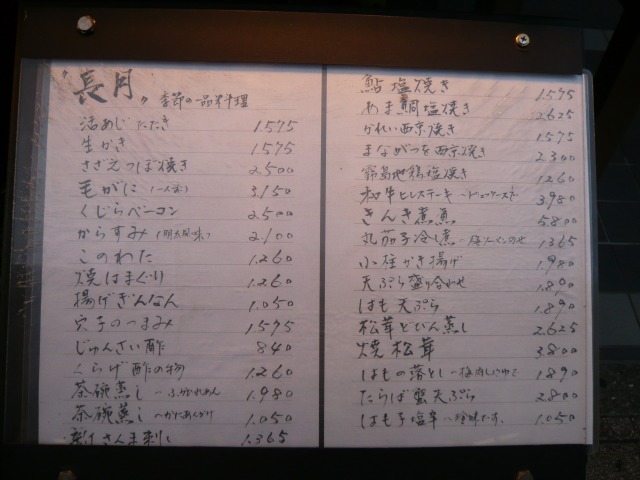 "長月" 季節の一品料理
活あじたたき 1.575
生がき 1.575
さざえつぼ焼き 2.500
毛がに 3.150
くじらベーコン 2.500
からすみ 2.100
このわた 1.260
焼はまぐり 1.260
揚げぎんなん 1.050
穴子のつまみ 1.575
じゅんさい酢 840
くらげ酢の物 1.260
茶碗蒸し 〜ふかひれあん 1.980
茶碗蒸し 〜かにあんかけ 1.050
新さんま刺し 1.365
鮎塩焼き 1.575
あま鯛塩焼き 2.625
かれい西京焼き 1.575
まながつを西京焼き 2.300
霧島地鶏塩焼き 1.260
和牛ヒレステーキ 3.980
きんき煮魚 5.800
丸茄子冷し煮 1.365
小柱かき揚げ 1.980
天ぷら盛り合わせ 1.890
はも天ぷら 1.890
松茸どびん蒸し 2.625
焼松茸 3.800
はもの落とし 1.890
たらば蟹天ぷら 2.800
はも子塩辛 〜珍味です 1.050